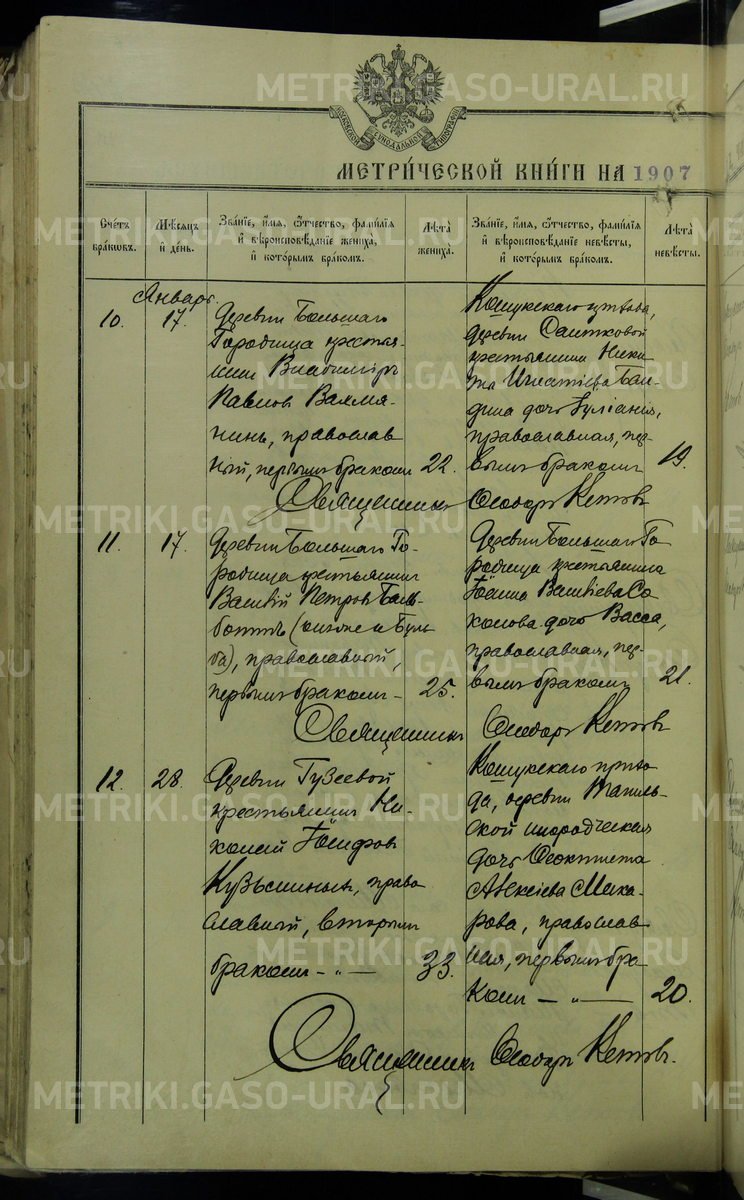 МОСКОВСКОЙ СУНОДАЛЬНОЙ ТИПОГРАФІИ
МЕТРИ́ЧЕСКОЙ КНИ́ГИ НА 1907
Сче́тъ бра́ковъ.
Мѣ́сяцъ и҆ де́нь.
Зва́нїе, и҆́мя, ѻ҆́тчество, фами́лїя и҆ вѣ̀роисповѣ́данїе жениха̀, и҆ кото́рымъ бра́комъ.
Лѣ́та жениха̀.
Зва́нїе, и҆́мя, ѻ҆́тчество, фами́лїя и҆ вѣ̀роисповѣ́данїе невѣ́сты, и҆ кото́рымъ бра́комъ.
Лѣ́та невѣ́сты.
Январь.
10.
17.
Деревни Большаго
Городища крестья-
нинъ Владимiръ
Павловъ Вахмя-
нинъ, православ
ный, первымъ бракомъ
22.
Кошукскаго прихода,
деревни Саитковой
крестьянина Ники-
ты Игнатіева Бан-
дина дочь Іуліанія,
православная, пер-
вымъ бракомъ
19.
Священникъ Ѳеодоръ Кетовъ
11.
17.
Деревни Большаго Го-
родища крестьянинъ
Василій Петровъ
православный,
первымъ бракомъ –
25.
Деревни Большаго Го-
родища крестьянина
Іоанна Васильева Со-
колова дочь Васса,
православная, пер-
вымъ бракомъ
21.
Священникъ Ѳеодоръ Кетовъ
12.
28.
Деревни Гузеевой
крестьянинъ Ни-
колай Іосифовъ
Кузьминыхъ, право
славный, вторымъ
бракомъ – „ –
33.
Кошукскаго прихо
да, деревни
инородческая
дочь Ѳеоктиста
Алексіева Мака-
рова, православ
ная, первымъ бра
комъ – „ –
20.
Священникъ Ѳеодоръ Кетовъ.
METRIKI.GASO-URAL.RU